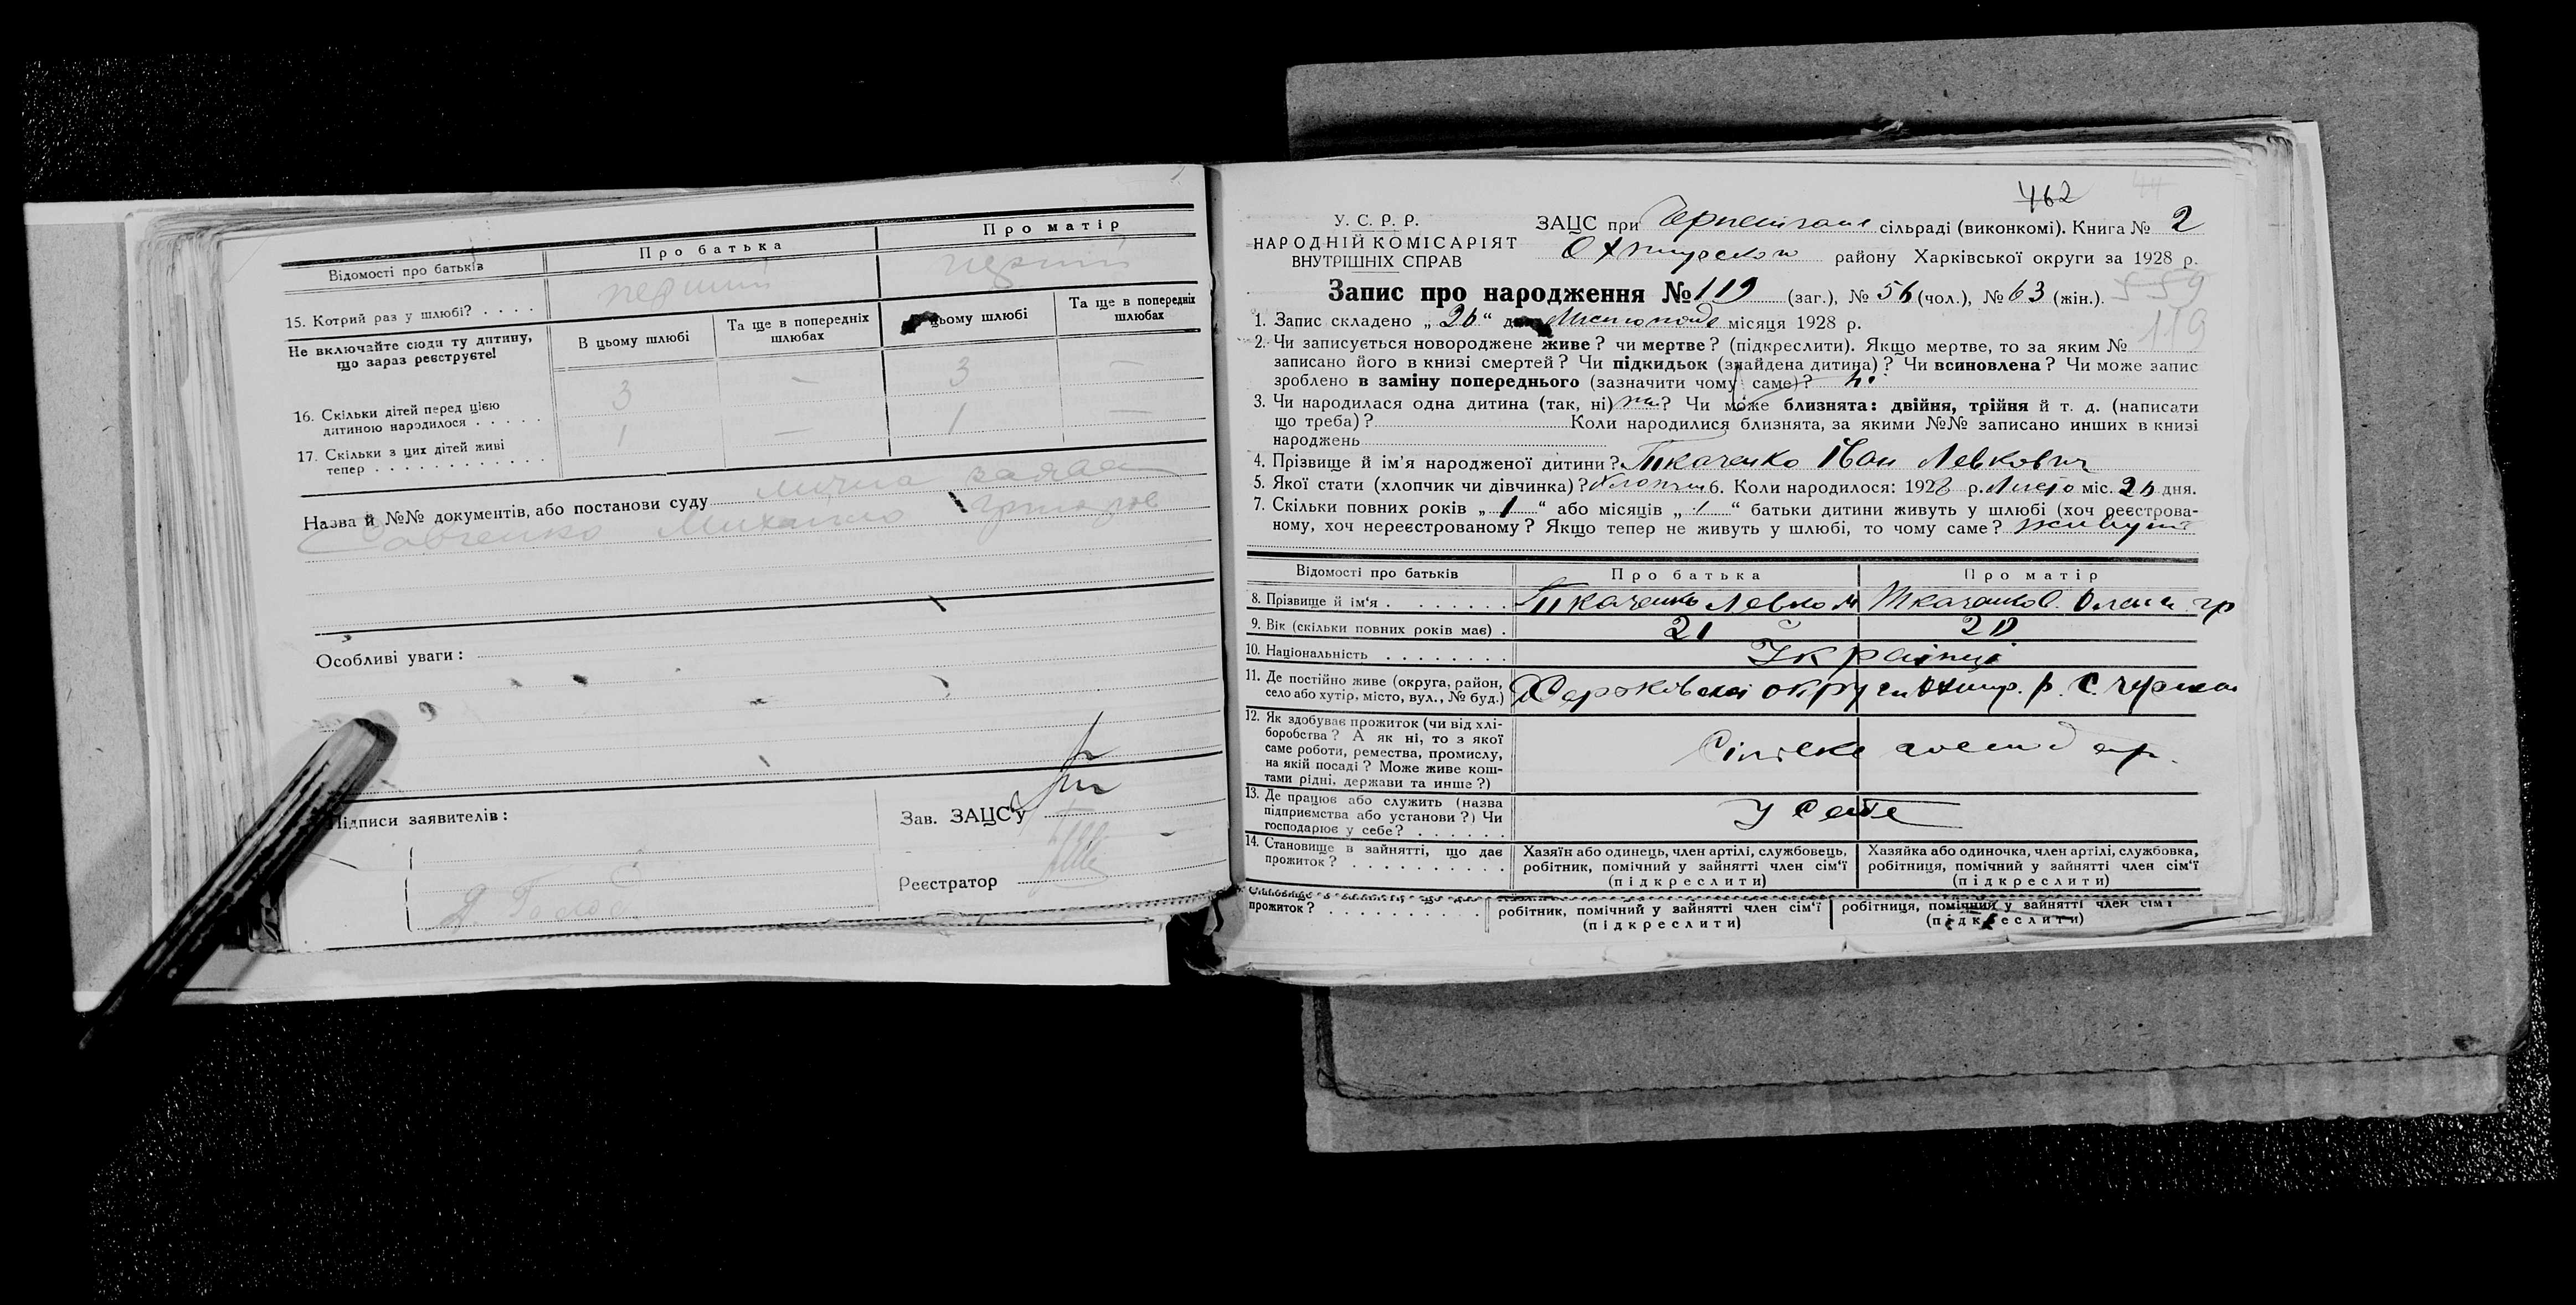 Відомості про батьків
Про батька
Про матір
15. Котрий раз у шлюбі? . . . .
перший
перший
Не включайте сюди ту дитину, що зараз реєструєте!
В цьому шлюбі
Та ще в попередніх шлюбах
цьому шлюбі
Та ще в попередніх шлюбах
16. Скільки дітей перед цією
дитиною народилося . . . . .
3 — 3 —
17. Скільки з цих дітей живі
тепер . . . . . . . . . . . . .
1 — 1 —
Назва й №№ документів, або постанови суду лична заява
Савченко Михайло
Особливі уваги:
Підписи заявителів:
Зав. ЗАЦСу
Реєстратор
462
У. С. Р. Р.
НАРОДНІЙ КОМІСАРІЯТ
ВНУТРІШНІХ СПРАВ
ЗАЦС при сільраді (виконкомі). Книга № 2
району Харківської округи за 1928 р.
559
Запис про народження № 119 (заг.), № 56 (чол.), № 63 (жін.).
119
1. Запис складено „ 26 “ Листопада місяця 1928 р.
2. Чи записується новороджене живе? чи мертве? (підкреслити). Якщо мертве, то за яким №
записано його в книзі смертей? Чи підкидьок (знайдена дитина)? Чи всиновлена? Чи може запис
зроблено в заміну попереднього (зазначити чому саме)?
3. Чи народилася одна дитина (так, ні) ? Чи може близнята: двійня, трійня й т. д. (написати
що треба)? Коли народилися близнята, за якими №№ записано инших в книзі
народжень
4. Прізвище й ім'я народженої дитини? Ткаченко Іван Левкович
5. Якої стати (хлопчик чи дівчинка)? Хлопчик 6. Коли народилося: 1928 р. Листо міс. 26 дня.
7. Скільки повних років „ 1 “ або місяців „ / “ батьки дитини живуть у шлюбі (хоч реєстрова-
ному, хоч нереєстрованому? Якщо тепер не живуть у шлюбі, то чому саме? живуть
Відомості про батьків
Про батька
Про матір
8. Прізвище й ім'я . . . . . . . .
Ткаченко Левко
Олена гр
9. Вік (скільки повних років має) .
21
20
10. Національність . . . . . . . .
Українці
11. Де постійно живе (округа, район,
село або хутір, місто, вул., № буд.)
Харківської округи р. с.
12. Як здобуває прожиток (чи від хлі-
боробства? А як ні, то з якої
саме роботи, ремества, промислу,
на якій посаді? Може живе кош-
тами рідні, держави та инше?)
13. Де працює або служить (назва
підприємства або установи?) Чи
господарює у себе? . . . . . .
У себе
14. Становище в зайнятті, що дає
прожиток? . . . . . . . . .
Хазяїн або одинець, член артілі, службовець,
робітник, помічний у зайнятті член сім'ї
(підкреслити)
Хазяйка або одиночка, член артілі, службовка,
робітниця, помічний у зайнятті член сім'ї
(підкреслити)
прожиток? . . . . . . . . . .
робітник, помічний у зайнятті член сім'ї
(підкреслити)
робітниця, помічний у зайнятті член сім'ї
(підкреслити)